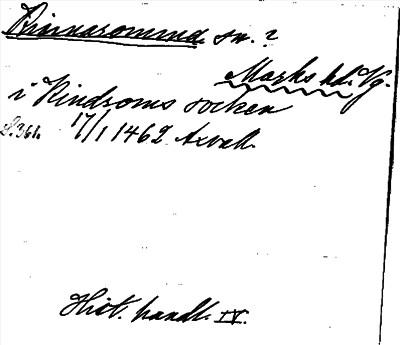 Kinnaromma sn.?
Marks hd. Vg.
i Kindroms socken
S. 361. 17/1 1462 Axvall.
Hist. handl. IV.